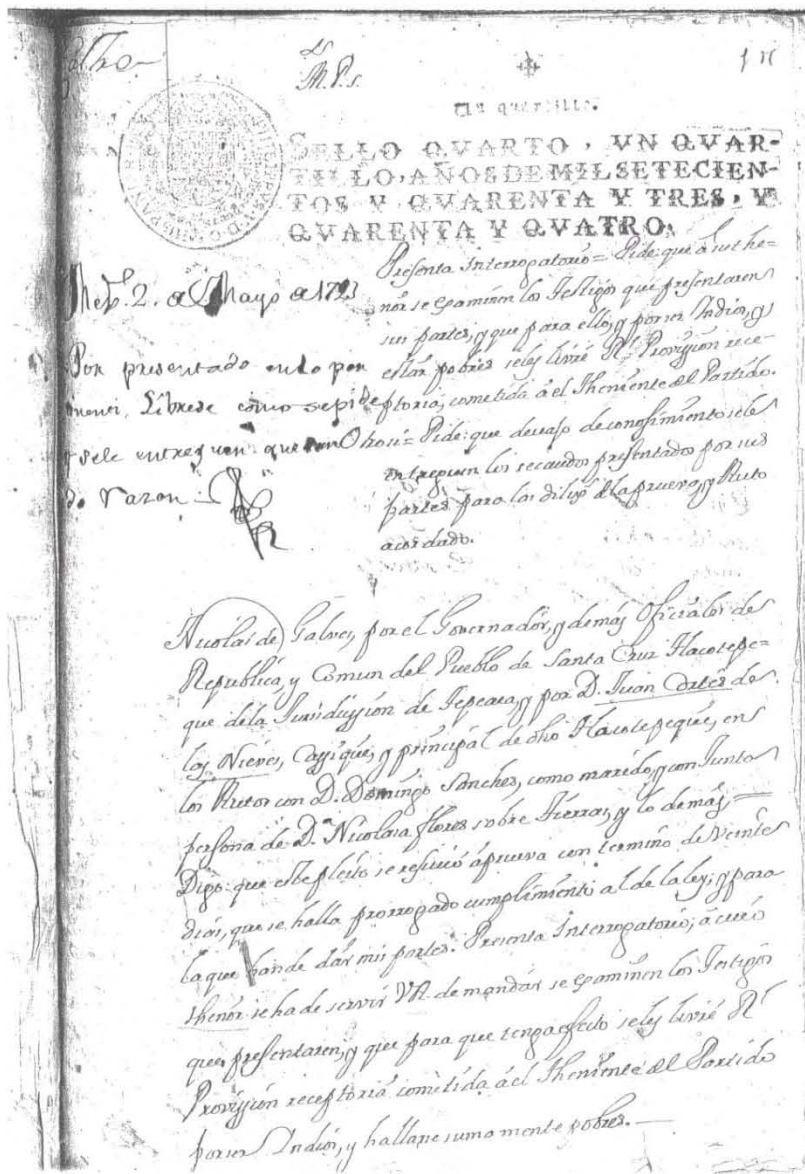 M. P. S.
Un quartillo.
SELLO QVARTO, VN QVAR-
TILLO, AÑOS DE MIL SETECIEN-
TOS Y QVARENTA Y TRES, Y
QVARENTA Y QVATRO.
Presenta Interrogatorio = Pide: que à su the=
nor se examinen los Testigos que presentaren
sus partes, y que para ello, y por ser Indios, y
estar pobres se les livre Rl. Provission rece-
ptoria, cometida à el Theniente del Partido.
Otro si = Pide: que devajo de conosimiento se le
entreguen los recaudos presentados por sus
partes para las dilixs. de la prueva, y Auto
acordado.
2. de Mayo de 1743
Por presentado en lo per
tinenci, Librese como se pide
y se le entreguen quedan
do razon
Nicolas de Galves, por el Governador, y demàs Oficiales de
Republica, y Comun del Pueblo de Santa Cruz Tlacotepe=
que de la Jurisdiyssion de Tepeaca, y por D. Juan Cortès de
las Nieves, Cassique, y principal de dho Tlacotepeque, en
los Autos con D. Domingo Sanches, como marido, y con Junta
persona de Da. Nicolasa flores sobre Tierras, y lo demàs =
Digo: que este pleito se resivió à prueva con termino de Veinte
dias, que se halla prorrogado cumplimiento al de la ley; y para
la que han de dàr mis partes. Presento Interrogatorio; à cuio
thenor se ha de servir VA. de mandàr se examinen los Testigos
que presentaren, y que para que tenga efecto se les livre Rl.
Provission receptoria cometida à el Theniente del Partido
por ser Indios, y hallarse sumamente pobres.